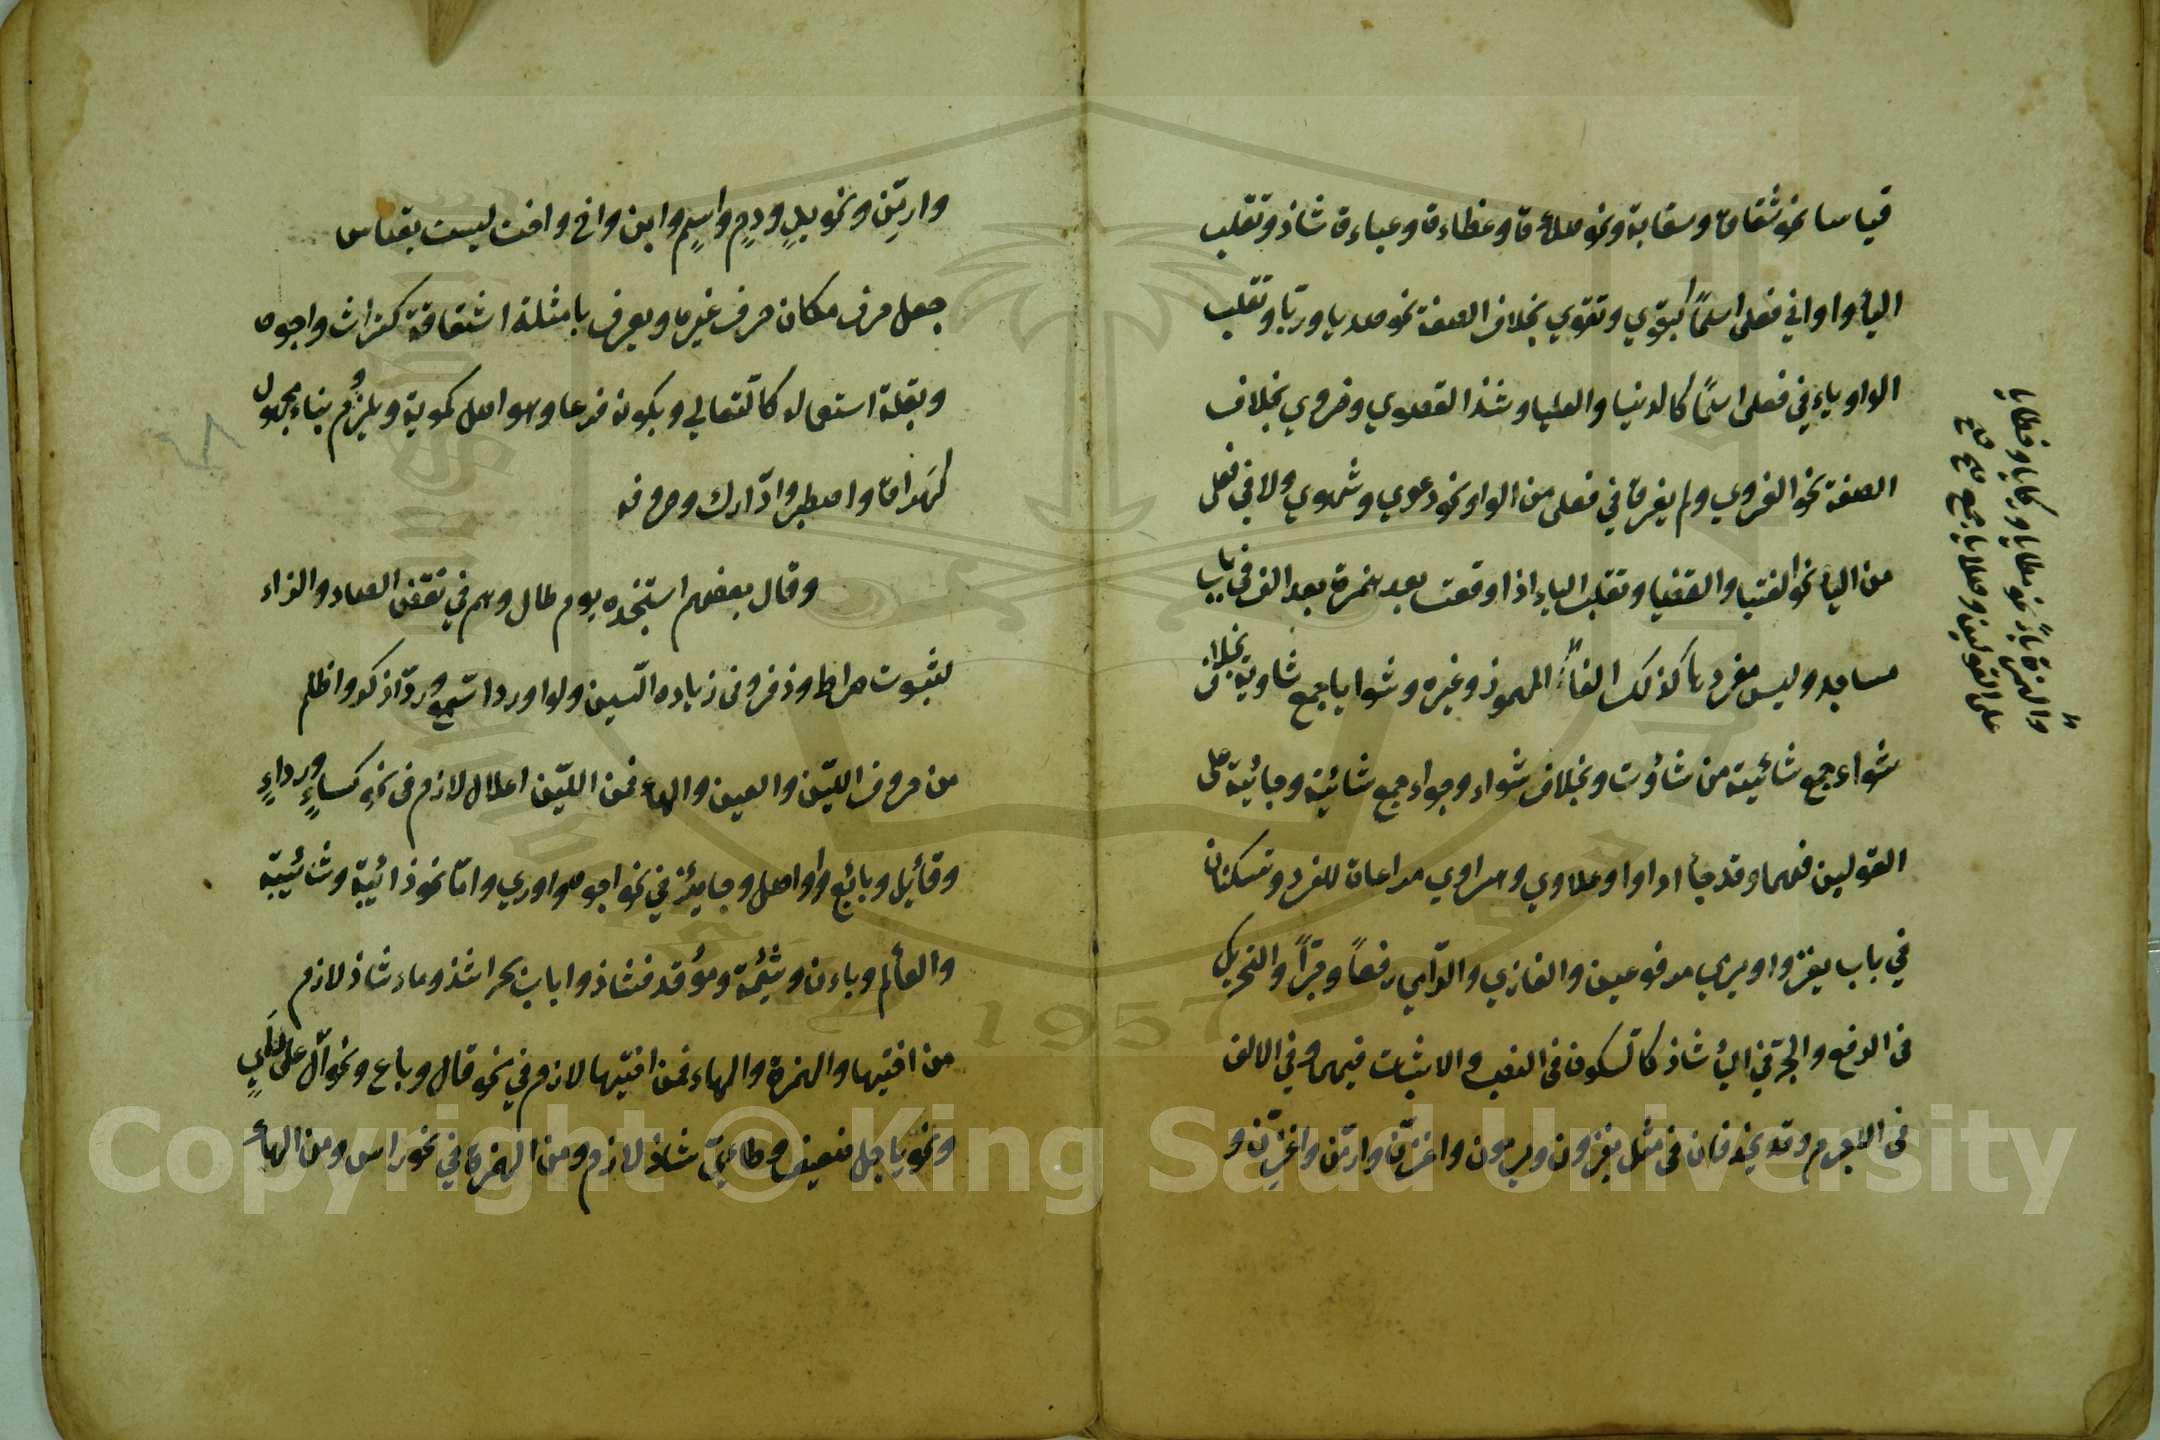 قياسا نحو شقاوة وسقاية ونحو صلاءة وعظاءة وعباءة شاذ وتقلب
الياء واوا في فعلى اسما كبقوي وتقوي بخلاف الصفة نحو صديا وريا وتقلب
الواو ياء في فعلى اسما كالدنيا والعليا وشذ القصوي وحزوي بخلاف
الصفة نحو الغزوي ولم يفرق في فعلى من الواو نحو دعوي وشهوي ولا في فعلى
من الياء نحو الفتيا والقضيا وتقلب الياء اذا وقعت بعد همزة بعد الف في باب
مساجد وليس مفردها كذلك الفا المهموز وغيره وشوايا جمع شاوية بخلاف
شواء جمع شائية من شاؤت وبخلاف شواء وجواء جمع شائية وجائية على
القولين فيهما وقد جاء اداوا وعلاوي وهراوي مراعاة للمفرد وتسكنان
في باب يغزوا ويرمي مرفوعين والغازي والرامي رفعا وجرا والتحريك
فى الرفع والجر في الياء شاذ كالسكون فى النصب والاثبات فيهما وفي الالف
فى الجزم وتحذفان فى مثل يغزون ويرمون واغزن وارمن واغزن و
والهمزة ياء نحو مطايا وركايا وخطايا
على القولين وصلايا جمع
وارمن ونحو يد ودم واسم وابن واخ واخت ليست بقياس
جعل حرف مكان حرف غيره ويعرف بامثلة اشتقاقة كتراث واجوه
وبقلة استعماله كالثعالي وبكونه فرعا وهو اصل كمويه ويلزوم بناء مجهول
كهراق واصطبر وادارك وحروفه
وقال بعضهم استنجده يوم طال وهم في نقص الصاد والزاء
لثبوت صراط وزقر وفى زياده السين ولو اورد اسمع ورد اذكر واظلم
من حروف اللين والعين والهاء فمن اللين اعلال لازم فى نحو كساء ورداء
وقائل وبائع واواصل وجايز في نحو اجوه واوري واما نحو دابة وشابة
والعألم وبأز وشئمة ومؤقد فشاذ واباب بحر اشذ وماء شاذ لازم
من اختيها والهمزة والهاء فمن اختيها لازم في نحو قال وباع ونحو آل على
ونحو ياجل ضعيف وطائي شاذ لازم ومن الهمزة في نحو راس ومن الهاء
Copyright © King Saud University
1957